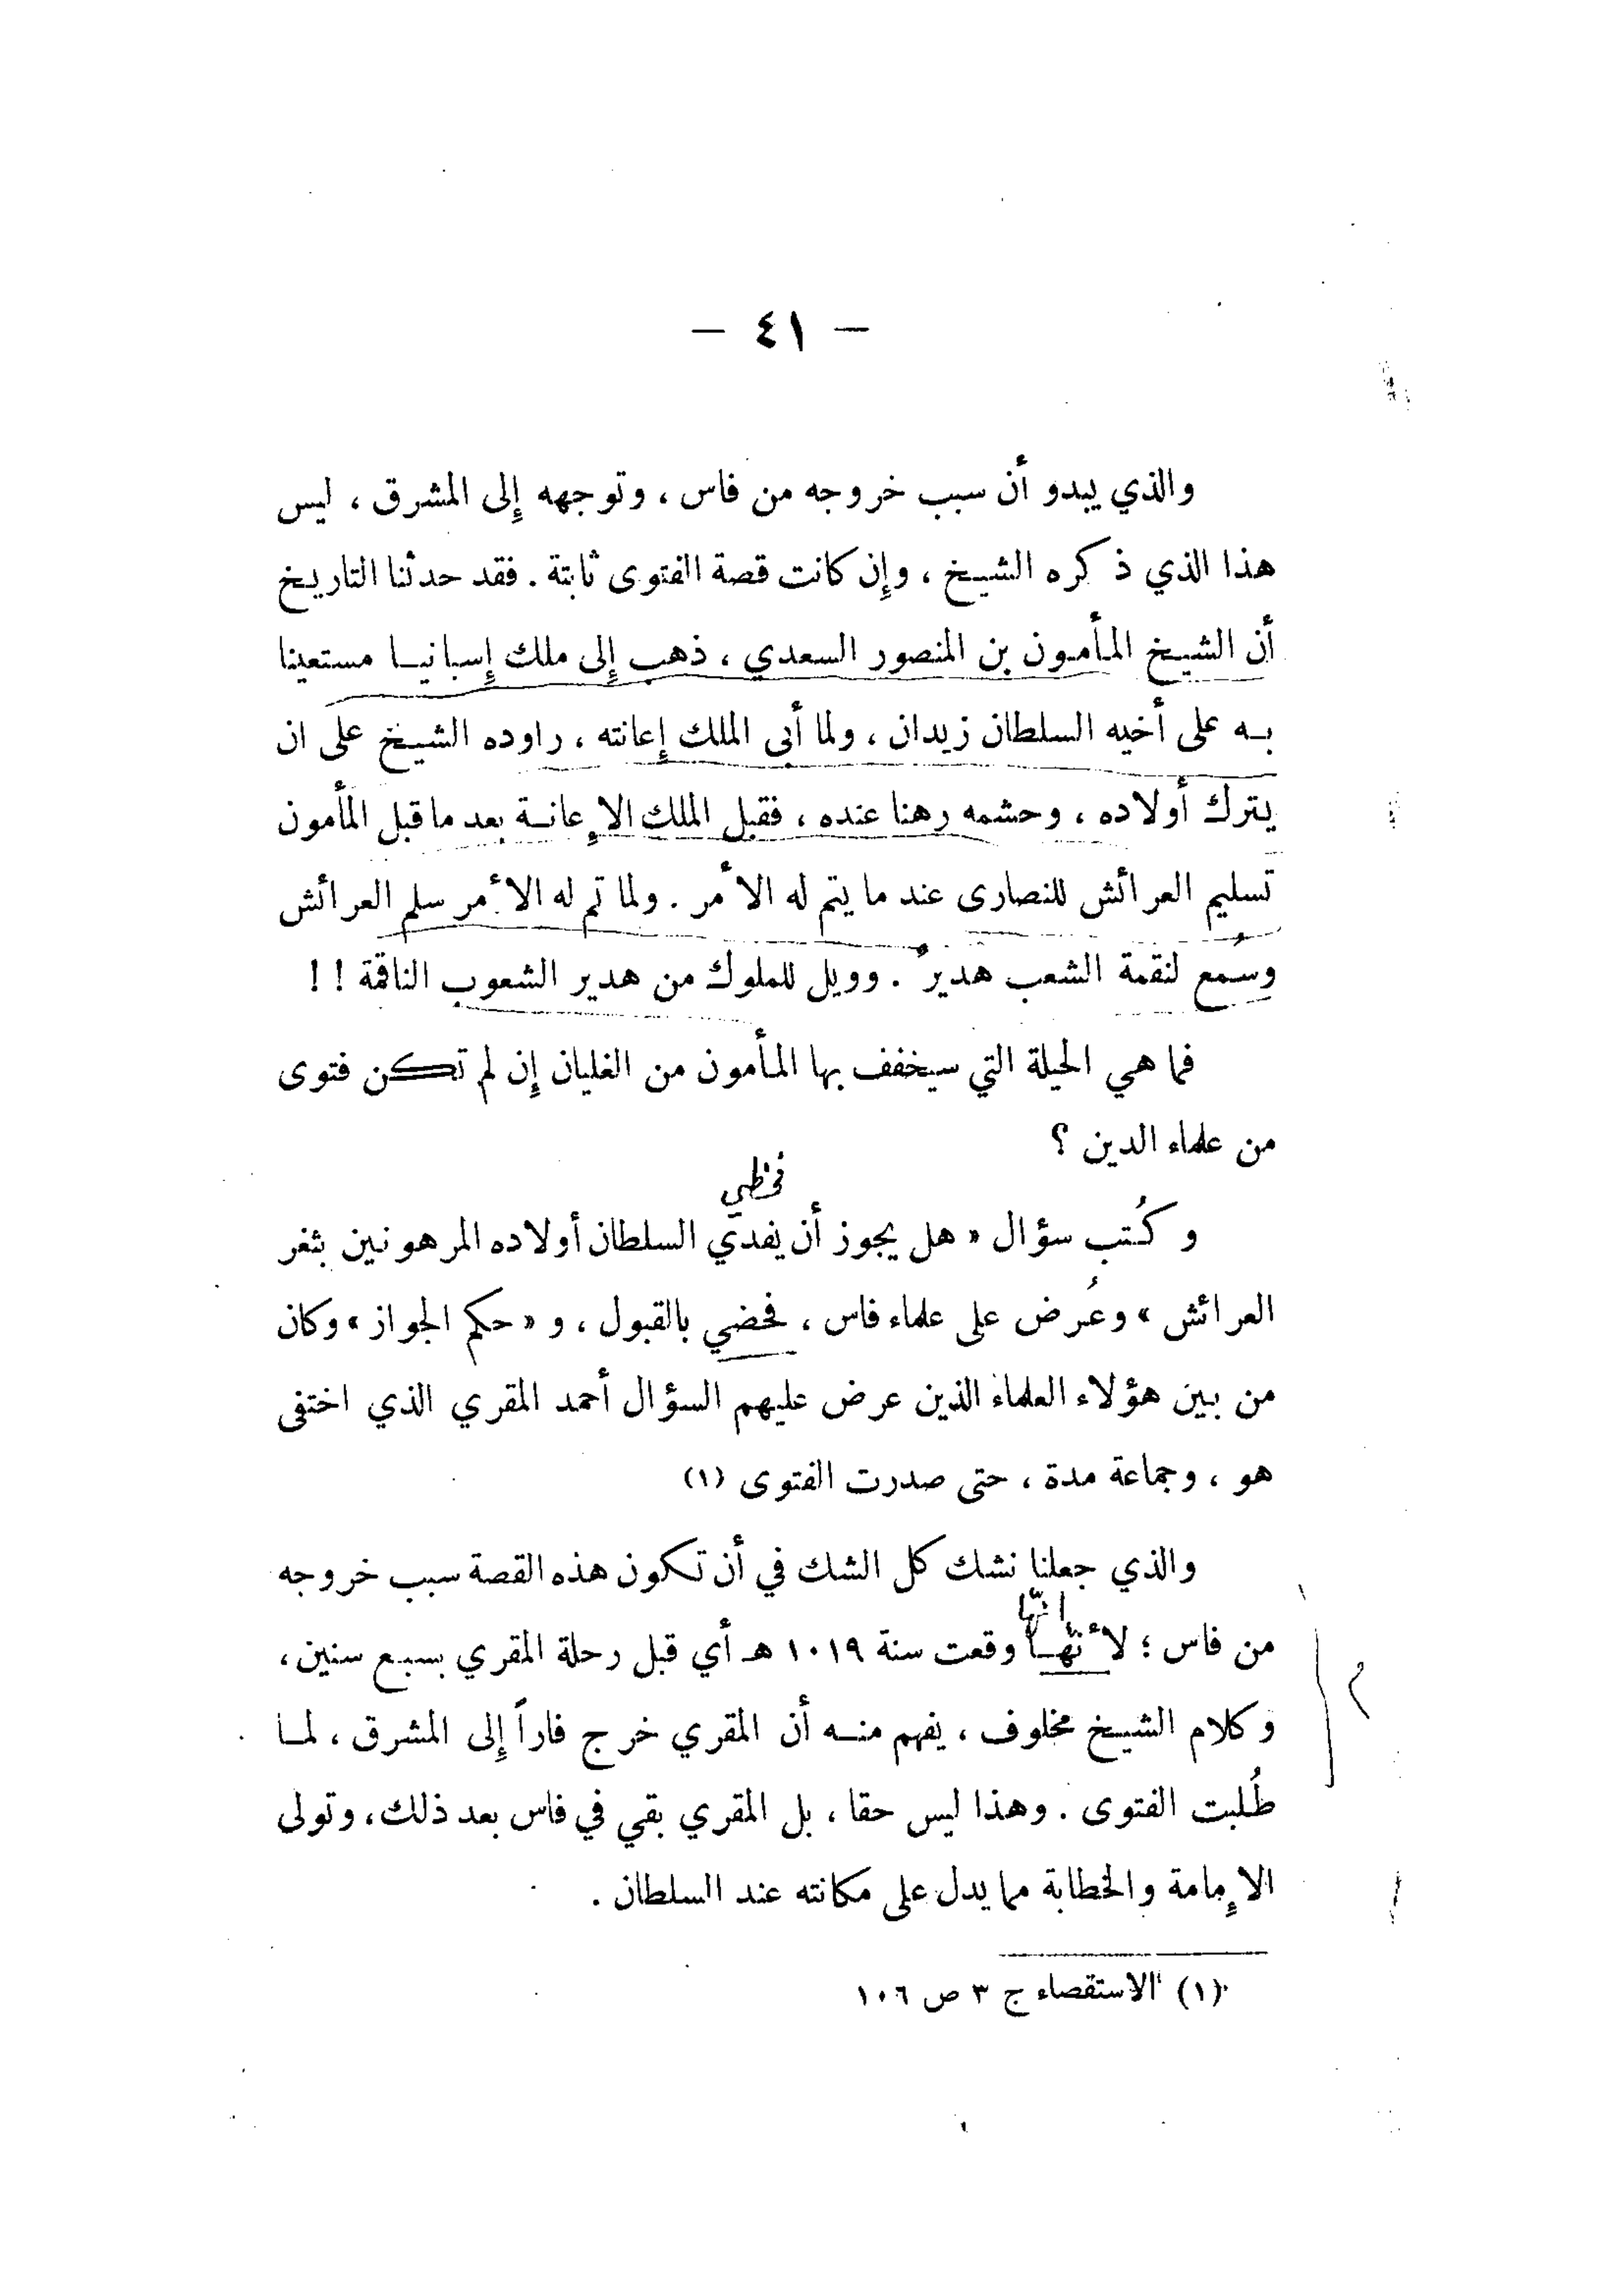 — ٤١ —
والذي يبدو أن سبب خروجه من فاس ، وتوجهه إلى المشرق ، ليس
هذا الذي ذكره الشيخ ، وإن كانت قصة الفتوى ثابتة . فقد حدثنا التاريخ
أن الشيخ المأمون بن المنصور السعدي ، ذهب إلى ملك إسبانيا مستعينا
به على أخيه السلطان زيدان ، ولما أبى الملك إعانته ، راوده الشيخ على ان
يترك أولاده ، وحشمه رهنا عنده ، فقبل الملك الإعانة بعد ما قبل المأمون
تسليم العرائش للنصارى عند ما يتم له الأمر . ولما تم له الأمر سلم العرائش
وسُمع لنقمة الشعب هديرٌ . وويل للملوك من هدير الشعوب الناقمة ! !
فما هي الحيلة التي سيخفف بها المأمون من الغليان إن لم تكن فتوى
من علماء الدين ؟
فحظي
وكُتب سؤال « هل يجوز أن يفدي السلطان أولاده المرهونين بثغر
العرائش » وعُرض على علماء فاس ، فحضي بالقبول ، و « حكم الجواز » وكان
من بين هؤلاء العلماء الذين عرض عليهم السؤال أحمد المقري الذي اختفى
هو ، وجماعة مدة ، حتى صدرت الفتوى (١)
والذي جعلنا نشك كل الشك في أن تكون هذه القصة سبب خروجه
انّها
من فاس ؛ لأنها وقعت سنة ١٠١٩ هـ أي قبل رحلة المقري بسبع سنين ،
وكلام الشيخ مخلوف ، يفهم منه أن المقري خرج فاراً إلى المشرق ، لما
طُلبت الفتوى . وهذا ليس حقا ، بل المقري بقي في فاس بعد ذلك ، وتولى
الإمامة والخطابة مما يدل على مكانته عند السلطان .
(١) الاستقصاء ج ٣ ص ١٠٦